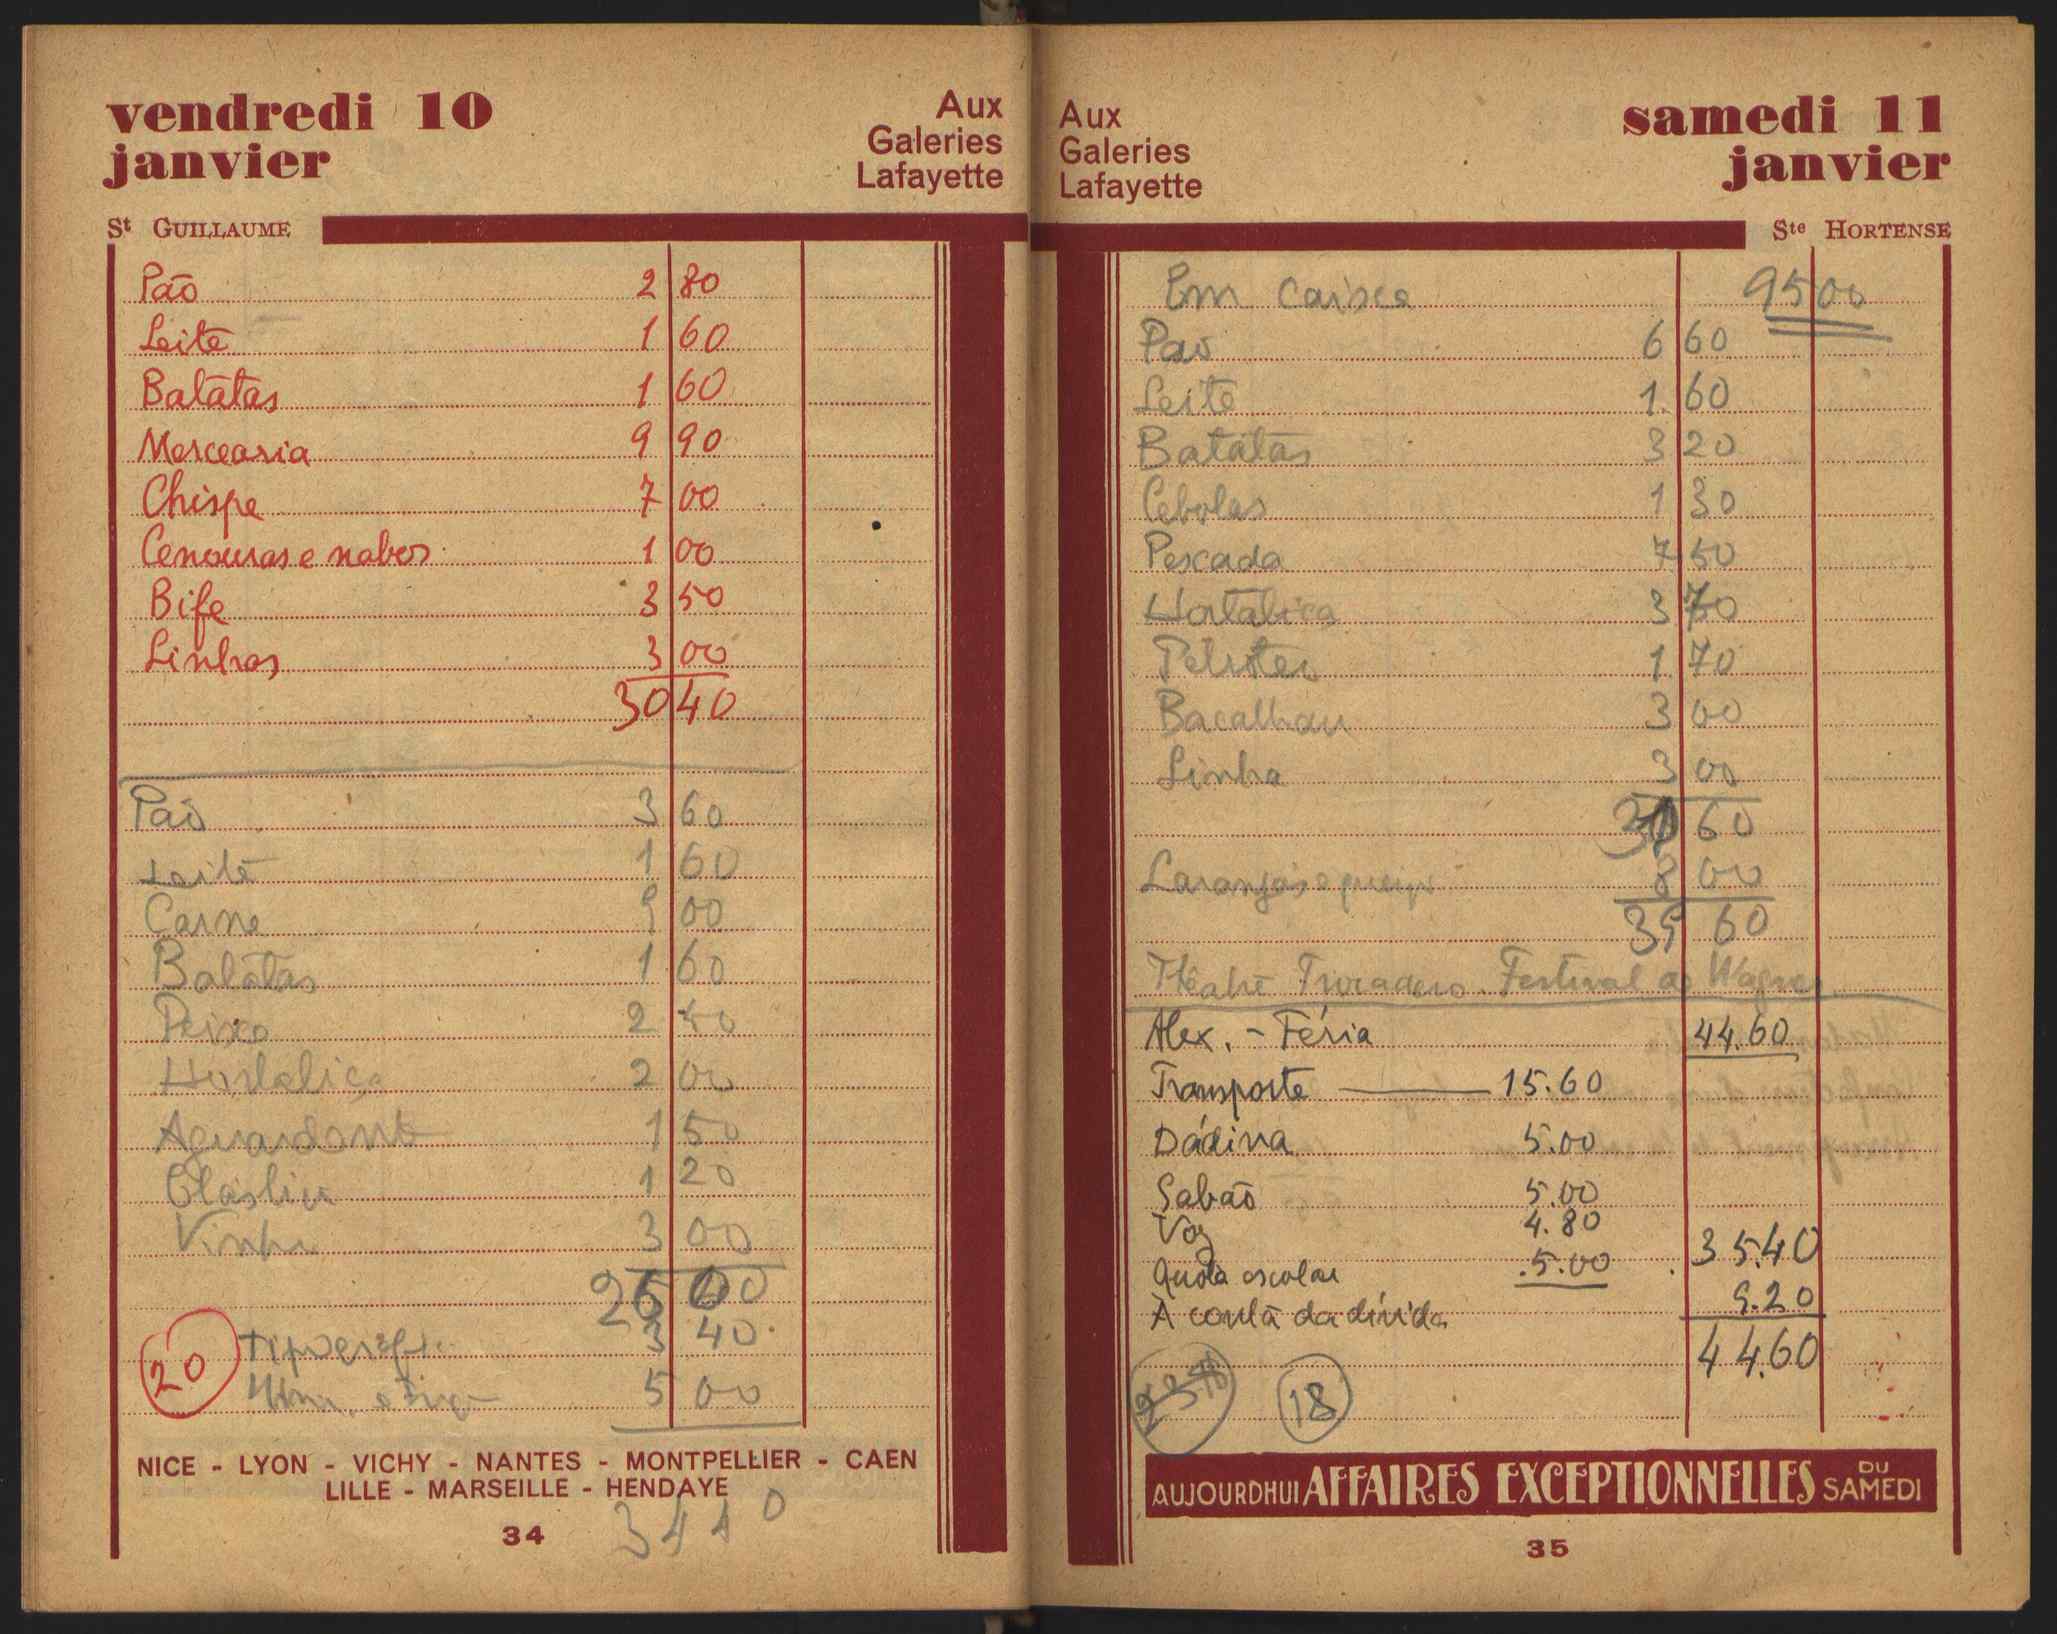 vendredi 10
janvier
Aux
Galeries
Lafayette
St GUILLAUME
Pão 2 80
Leite 1 60
Batatas 1 60
Mercearia 9 90
Chispe 7 00
Cenouras e nabos 1 00
Bife 3 50
Linhas 3 00
30 40
Pão 3 60
Leite 1 60
Carne 9 00
Batatas 1 60
Peixe 2 40
Hortaliça 2 00
Aguardente 1 50
1 20
Vinho 3 00
3 40
20
5 00
NICE - LYON - VICHY - NANTES - MONTPELLIER - CAEN
LILLE - MARSEILLE - HENDAYE
34
Aux
Galeries
Lafayette
samedi 11
janvier
Ste HORTENSE
Em caixa 95 00
Pao 6 60
Leite 1. 60
Batatas 3 20
Cebolas 1 30
Pescada 7 50
Hortaliça 3
1 70
Bacalhau 3 00
Linha 3 00
60
Laranjas e 8 00
39 60
Festival Wagner
Alex. - Féria 44.60
Transporte 15.60
Dádiva 5.00
Sabão 5.00
Voz 4.80
Quota escolar 5.00 35.40
À conta da dívida 9.20
44.60
18
AUJOURDHUI AFFAIRES EXCEPTIONNELLES DU SAMEDI
35